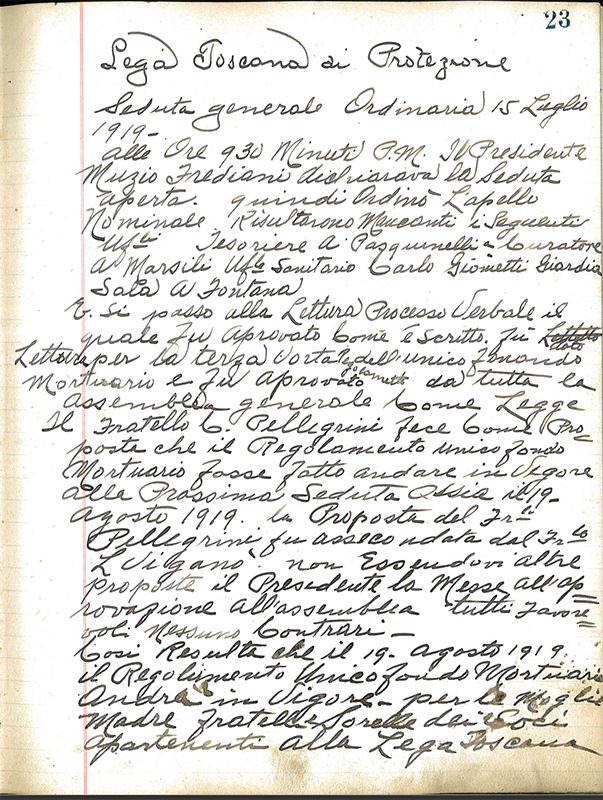 23
Lega Toscana di Protezione
Seduta generale Ordinaria 15 Luglio
1919-
alle Ore 930 Minuti P.M. Il Presidente
Muzio Frediani dichiarava la Seduta
aperta. quindi Ordinò Lapello
Nominale Risultarono Mancanti i Seguenti
Uf.li Tesoriere A Pasquinelli - Curatore
A Marsili Uf.le Sanitario Carlo Giometti Giardia
Sala A Fontana
E. Si passo alla Lettura Processo Verbale il
quale fu Aprovato Come è Scritto. fu
Letture per la terza Vorta dell'unico fonondo
Mortuario e fu aprovato da tutta la
assemblea generale Come Legge
Il Fratello C Pellegrini fece Come Pro=
posta che il Regolamento unico fondo
Mortuario fosse fatto andare in Vigore
alla Prossima Seduta Ossia il 19-
Agosto 1919. la Proposta del Fr.llo
Pellegrini fu assecondata dal Fr.llo
L Viganò. non Essendovi altre
proposte il Presidente la Messe all'ap=
rovazione all'assemblea tutti Favore=
voli Nessuno Contrari -
Cosi Resulta che il 19- Agosto 1919.
il Regolumento Unico fondo Mortuario
Andrà in Vigore - per le Moglie
Madre fratelli e Sorelle dei Soci
apartenenti alla Lega Toscana